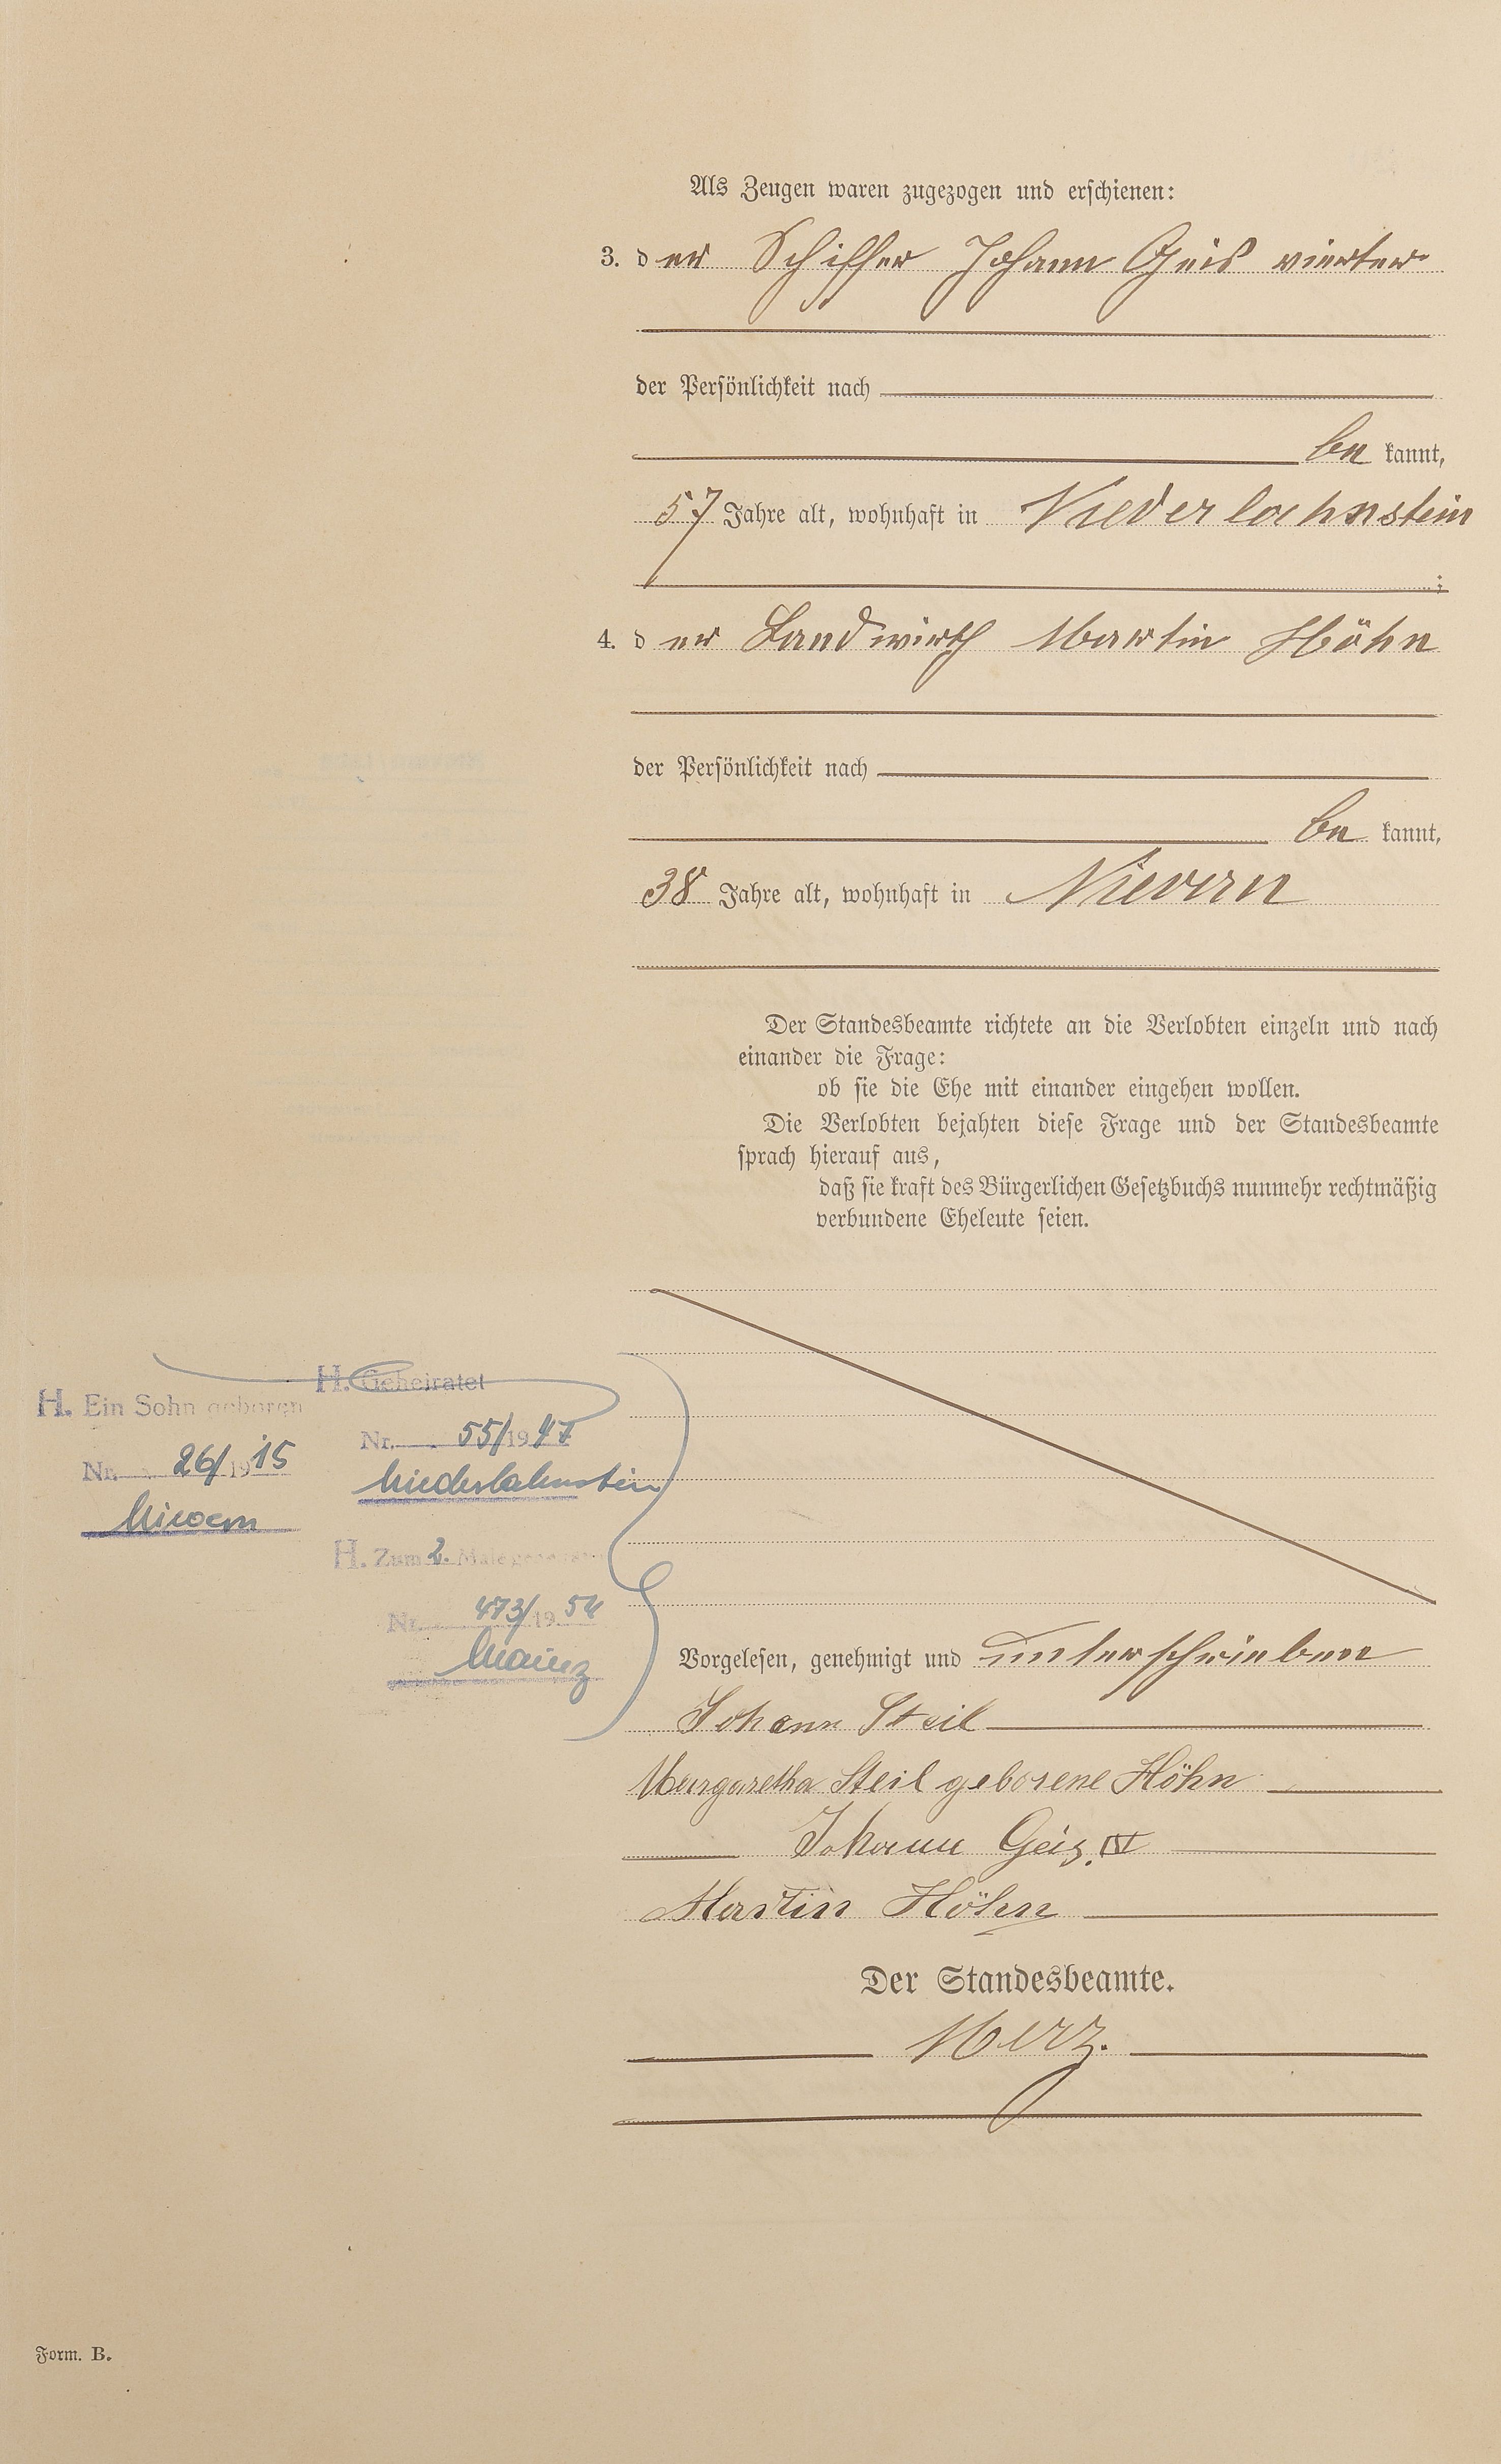 Als Zeugen waren zugezogen und erschienen:
3. der Schiffer Johann Geis vierter
der Persönlichkeit nach
be kannt,
57 Jahre alt, wohnhaft in Niederlahnstein
;
4. der Landwirth Martin Höhn
der Persönlichkeit nach
be kannt,
38 Jahre alt, wohnhaft in Nievern
Der Standesbeamte richtete an die Verlobten einzeln und nach
einander die Frage:
ob sie die Ehe mit einander eingehen wollen.
Die Verlobten bejahten diese Frage und der Standesbeamte
sprach hierauf aus,
daß sie kraft des Bürgerlichen Gesetzbuchs nunmehr rechtmäßig
verbundene Eheleute seien.
H. Ein Sohn geboren
Nr. 26/1915
Nievern
H. Geheiratet
Nr. 55/1947
Niederlahnstein
H. Zum 2. Male
Nr. 473/1954
Mainz
Vorgelesen, genehmigt und unterschrieben
Johann Steil
Margaretha Steil geborene Höhn
Johann Geis. IV
Martin Höhn
Der Standesbeamte.
Merz.
Form. B.